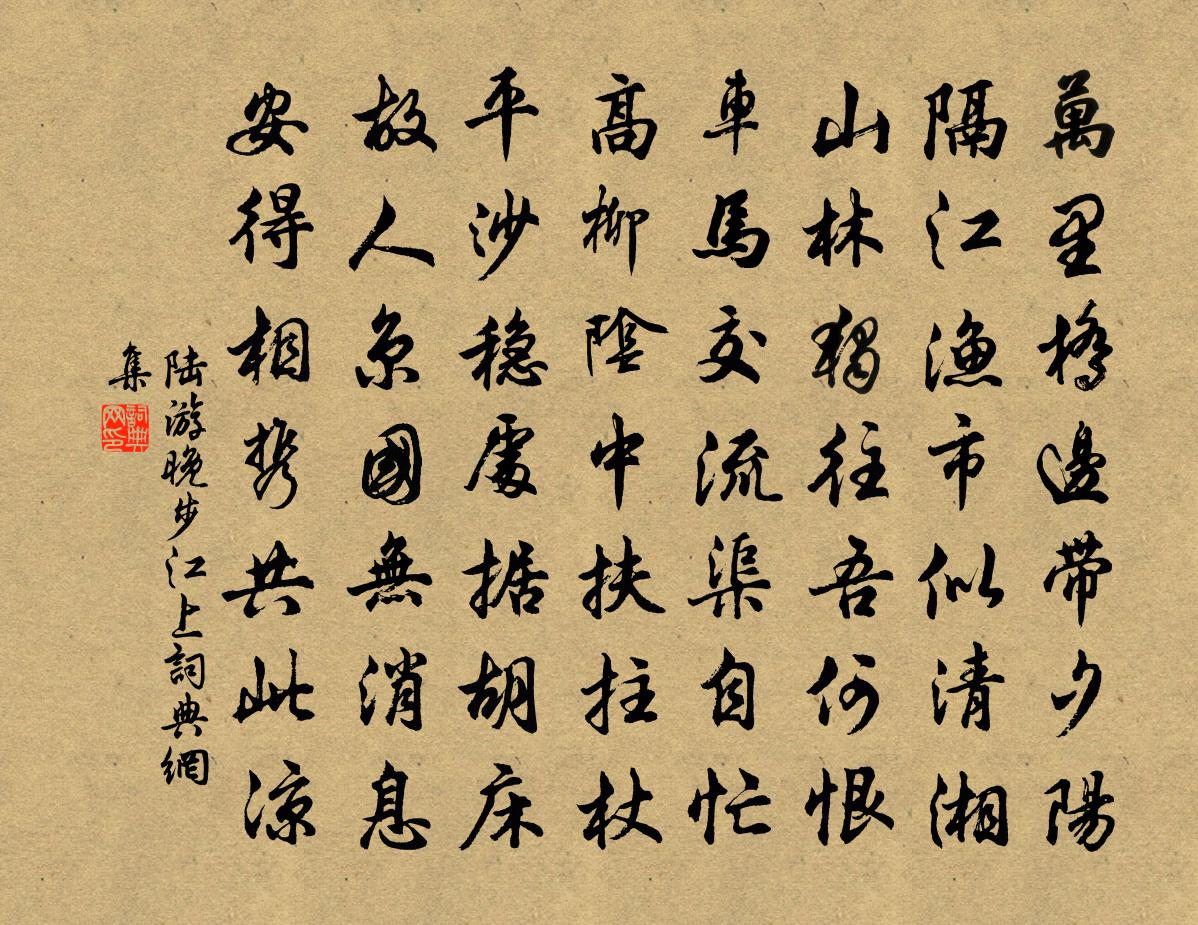 萬里橋邊帶夕陽
隔江漁市似清湘
山林獨往吾何恨
車馬交流渠自忙
高柳陰中扶拄杖
平沙稳處据胡床
故人京國無消息
安得相携共此凉
陆游晚步江上詞典網
集
詞典
网印